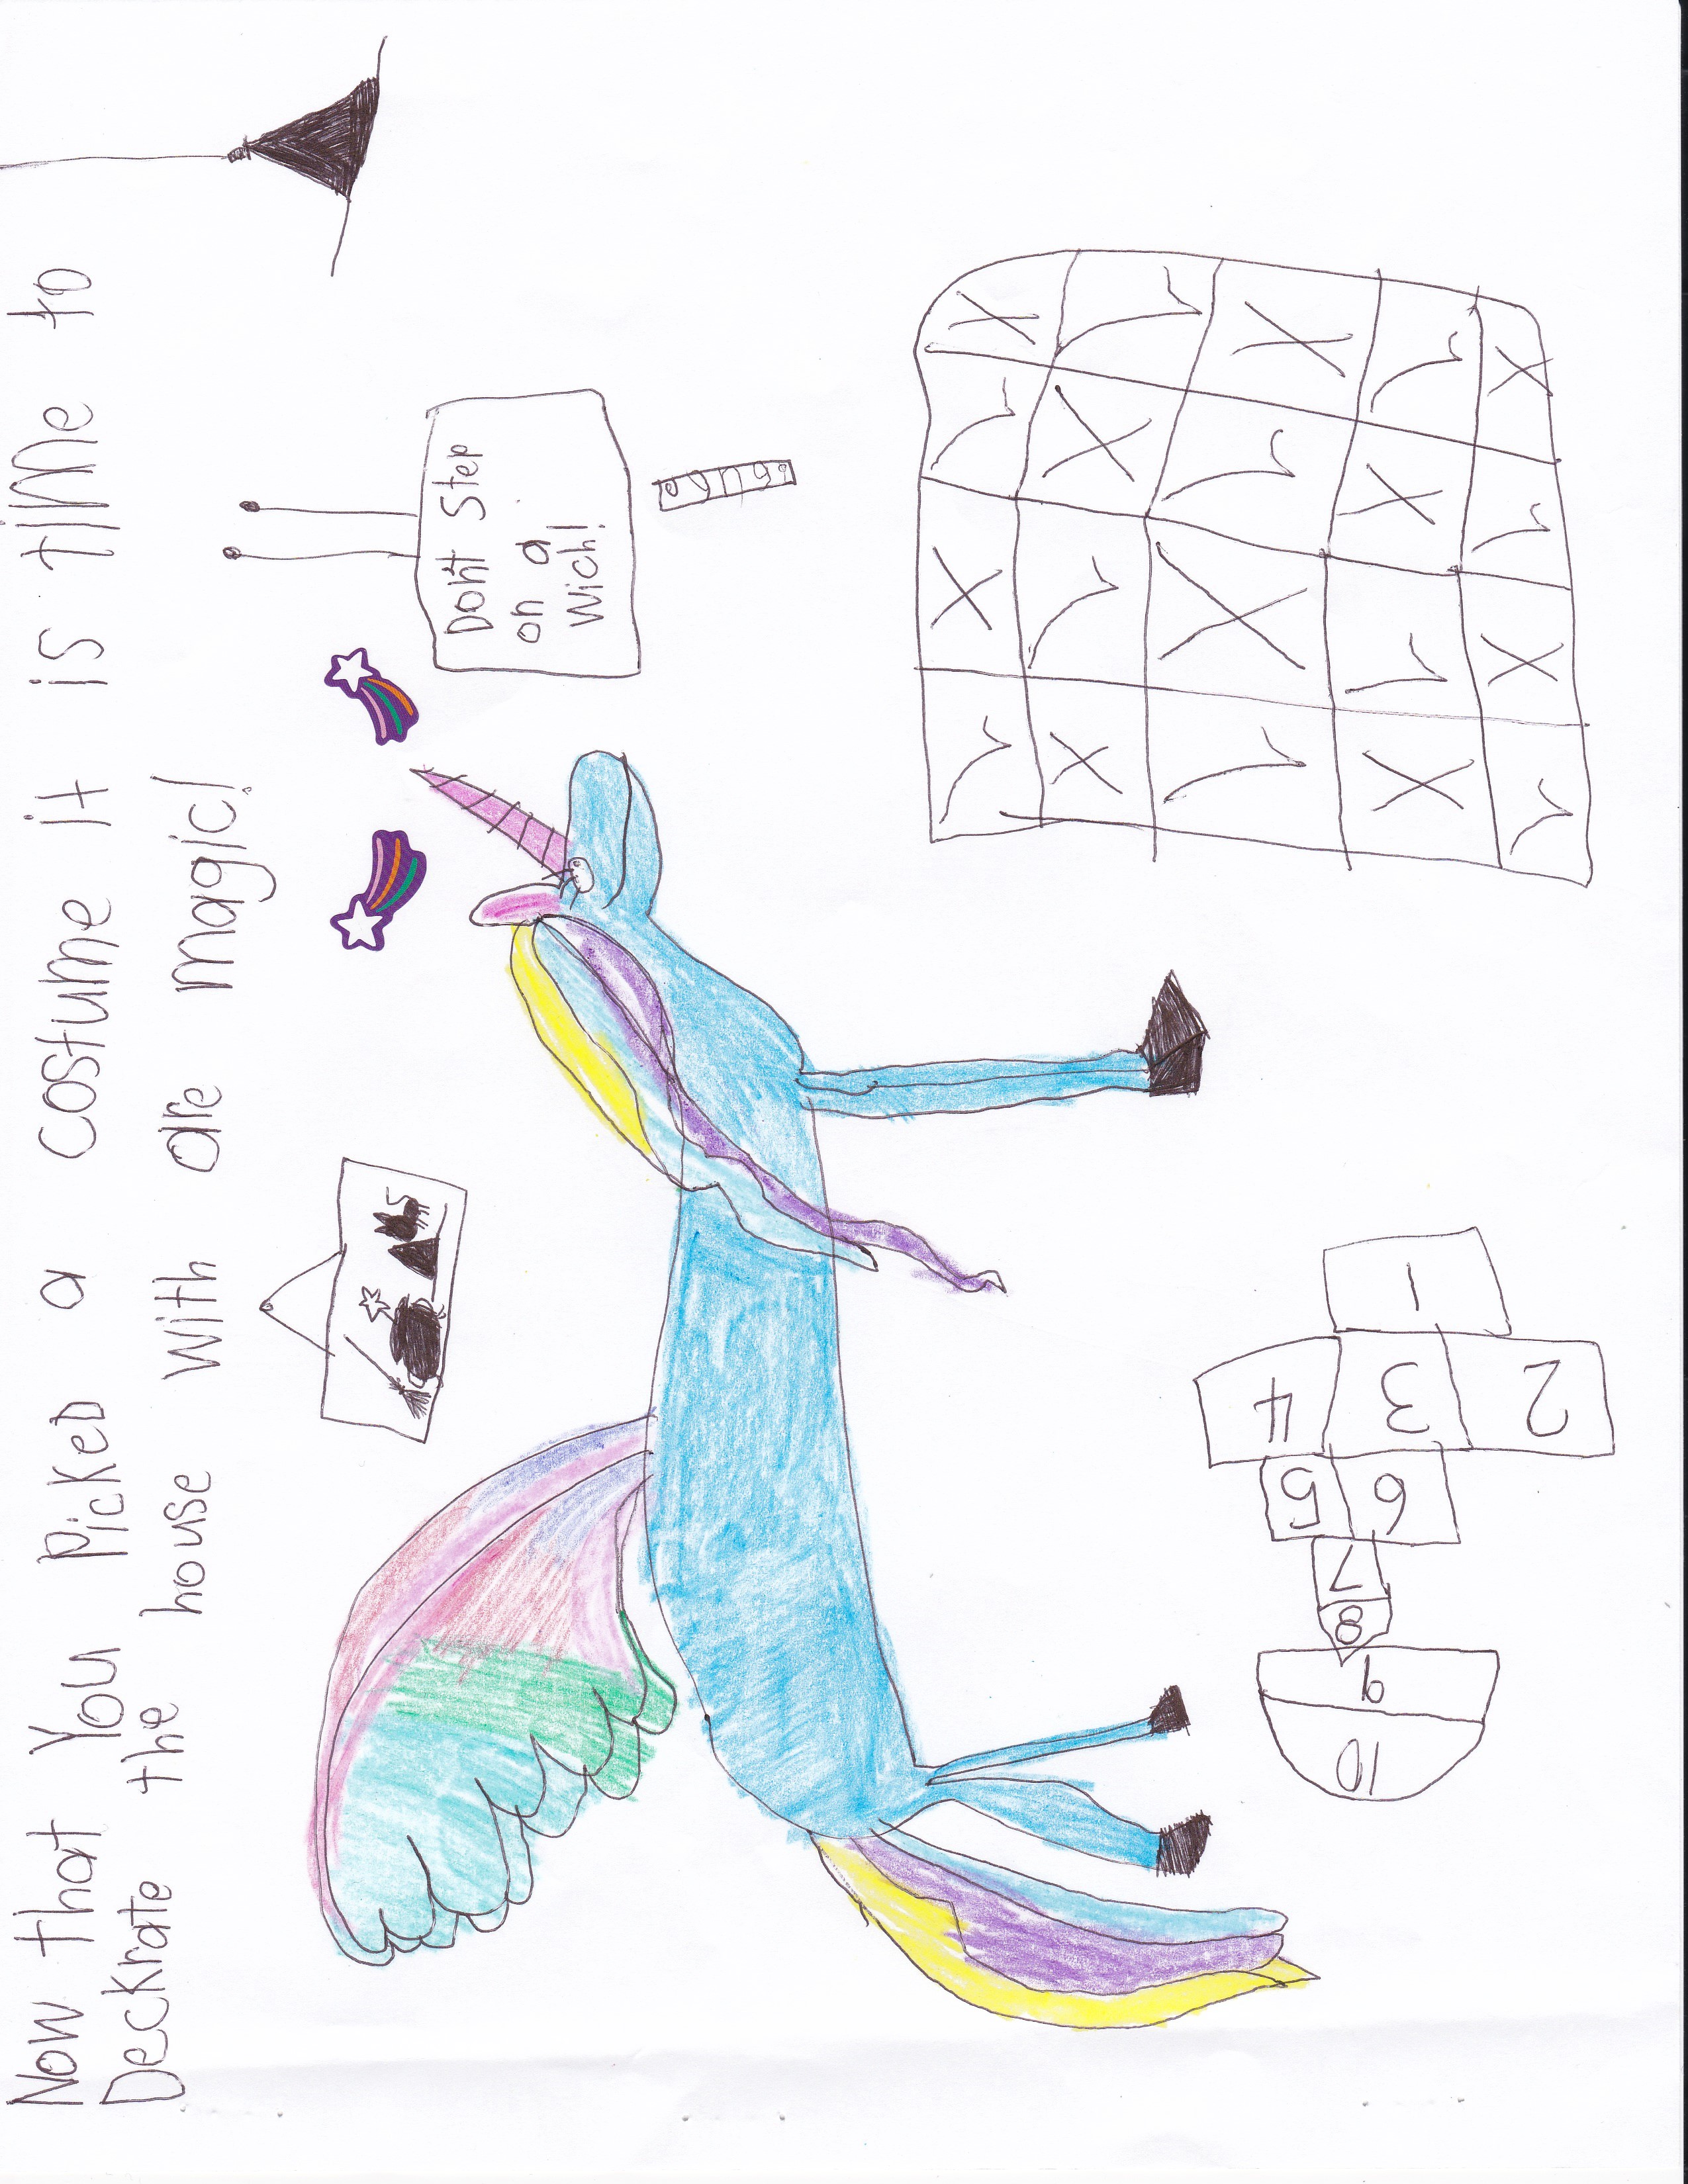 Now that You Picked a costume it is time to
Deckrate the house with are magic!
Don't Step
on a
Wich!
10
9
8
7
5
6
4
3
2
1